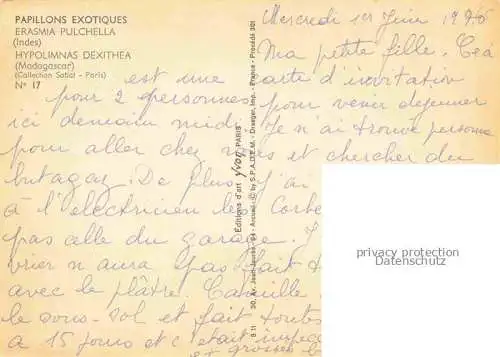 PAPILLONS EXOTIQUES
ERASMIA PULCHELLA
(Indes)
HYPOLIMNAS DEXITHEA
(Madagascar)
(Collection Satiat - Paris)
N° 17
Mercredi 1er Juin
Ma petite fille. Ta
carte d'invitation
pour venir dejeuner
Je n'ai trouvé personne
et chercher du
est une
pour 2 personnes
ici demain midi
pour aller chez
butagaz. De plus j'ai
à l'electricien les
pas celle du garage.
vrier n aura pas fait
avec le platre.
le sous-sol et fait toutes
à 15 jours et c etait
et grosses
Editions d'art Yvon PARIS
30, Av. Jean-Jaurès, 94 - Arcueil - © by S.P.A.D.E.M. - Draeger, Imp. - France - Procédé 301
8 11
privacy protection
Datenschutz